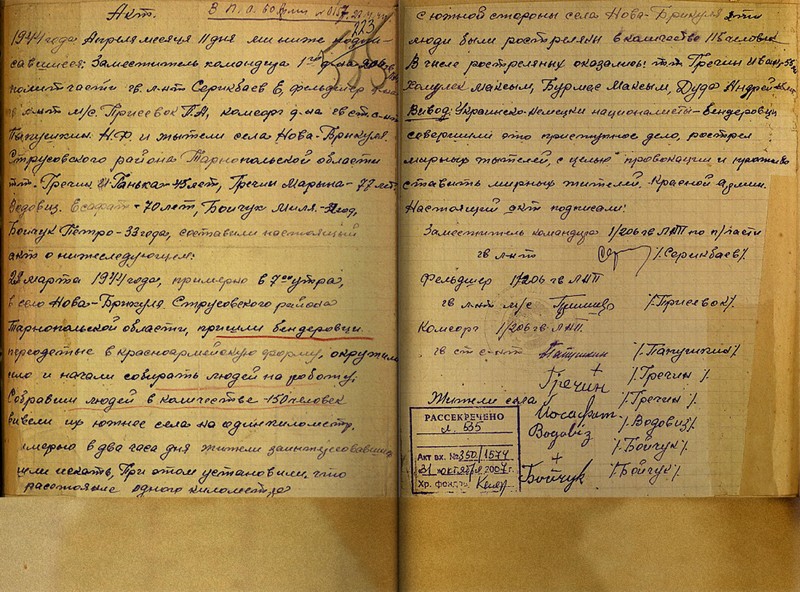 Акт.
1944 года Апреля месяца 11 дня мы ниже подпи-
савшиеся: Заместитель командира 1го
политчасти гв. л-нт Серикбаев В, фельдшер
гв. л-нт м/с. Присевок П.А, комсорг д-на гв ст. с-нт
Папушкин. Н.Ф. и жители села Нова-Брикуля.
Струсовского района Тарнопольской области
т.т. Гречин И Ганька-45 лет, Гречин Марына-77 лет
Водовиз. Есафат-70 лет, Бойчук Миля-
Бойчук Петро-33 года, составили настоящий
акт о нижеследующем:
28 марта 1944 года, примерно в 7 00 утра,
в село Нова-Брикуля Струсовского района
Тарнопольской области, пришли бендеровцы
переодетые в красноармейскую форму, окружили
село и начали собирать людей на работу.
Собравши людей в количестве 150 человек
вывели их южнее села на один километр.
Примерно в два часа дня жители заинтересовавшись
шли искать, При этом установили, что
расстоянии одного километра
с южной стороны села Нова-Брикуля эти
люди были ростреляны в количестве 115 человек
В числе ростреляных оказались: т.т. Гречин Иван
Максым, Бурмас Максым, Дуда Андрей
Вывод: Украинско-немецки националисты-Бендеровцы
совершили это приступное дело, рострел
мирных жителей, с целью провокации и
ставить мирных жителей. Красной армии.
Настоящий акт подписали:
Заместитель командира 1/206 гв ЛПП по п/части
гв л-нт /.Серикбаев/.
Фельдшер 1/206 гв ЛПП
гв. л-нт м/с /.Присевок/.
Комсорг 1/206 гв ЛПП.
гв ст с-нт Папушкин /.Папушкин/.
+
Гречин /.Гречин/.
Жители села /.Гречин/.
Йосафат
Водовіз /.Водовиз/.
+ /.Бойчук/.
Бойчук /.Бойчук/.
РАССЕКРЕЧЕНО
л. 535
Акт вх. № 350/1574
31 октября 2007 г.
Хр. фонда